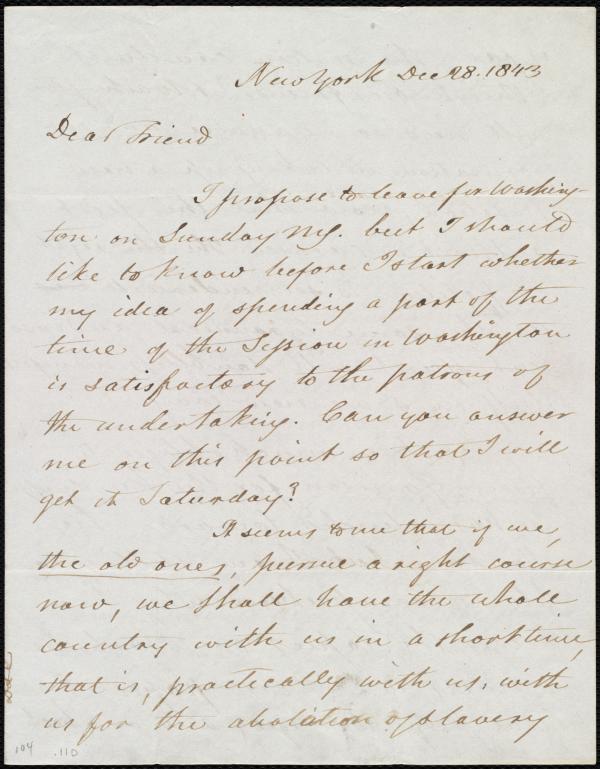 New York Dec 28. 1843
Dear Friend
I propose to leave for Washing-
ton on Sunday but I should
like to know before I start whether
my idea of spending a part of the
time of the Session in Washington
is satisfactory to the patrons of
the undertaking. Can you answer
me on this point so that I will
get it Saturday?
It seems to me that if we,
the old ones, pursue a right course
now, we shall have the whole
country with us in a short time,
that is, practically with us, with
us for the abolition of slavery
104 .110